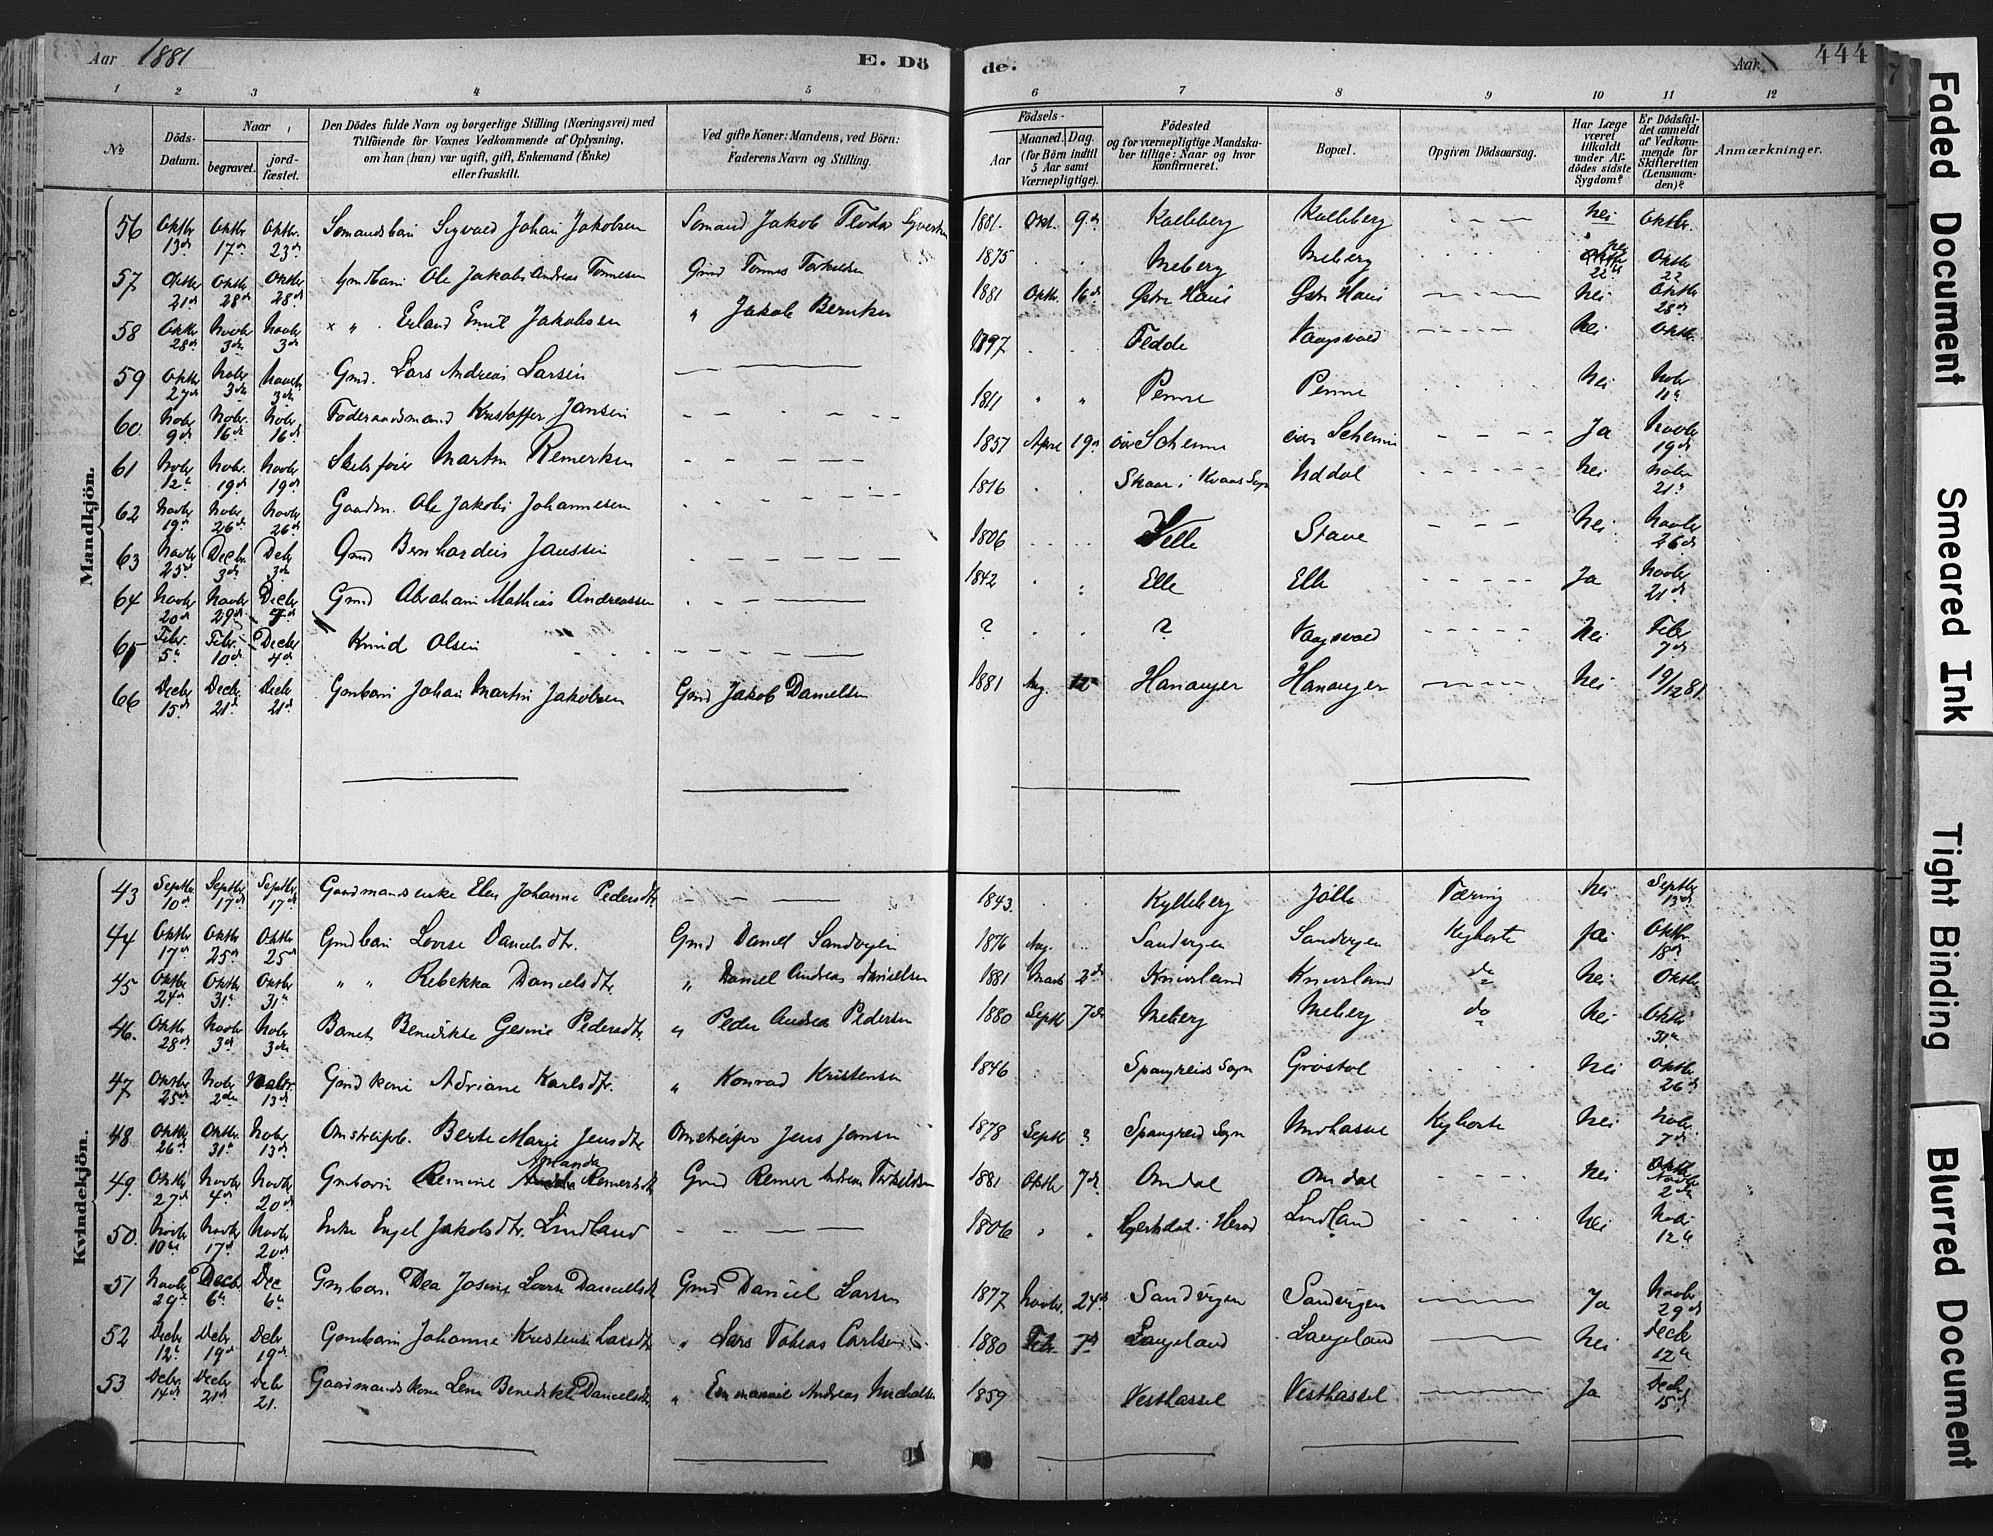 Aar 1881
E. Dö
de.
Aar
444
1 2 3 4 5 6 7 8 9 10 11 12
No
Döds-Datum.
Naar
begravet.
jord-fæstet.
Den Dödes fulde Navn og borgerlige Stilling (Næringsvei) med
Tilföiende for Voxnes Vedkommende af Oplysning,
om han (hun) var ugift, gift, Enkemand (Enke)
eller fraskilt.
Ved gifte Koner: Mandens, ved Börn:
Faderens Navn og Stilling.
Födsels-
Aar
Maaned. Dag.
(for Börn indtil
5 Aar samt
Værnepligtige).
Födested
og for værnepligtige Mandska-
ber tillige: Naar og hvor
konfirmeret.
Bopæl.
Opgiven Dödsaarsag.
Har Læge
været
tilkaldt
under Af-
dödes sidste
Sygdom?
Er Dödsfal-
det anmeldt
af Vedkom-
mende for
Skifteretten
(Lensman-
den)?
Anmærkninger.
Mandkjön.
56 Oktbr 13de Oktbr 17de Oktbr. 23de Sigvald Johan Jakobsen Jakob 1881. Okt. 9de Kalleberg Kalleberg Nei Oktbr.
57 Oktbr 21de Oktbr 28de Oktbr 28de Ole Jakob Andreas Tønnesen Gmd Tønnes Torkildsen 1875 Meberg Meberg nei Oktbr 22
58 Oktbr 28de Novbr 3de Novbr 3de Erland Emil Jakobsen " Jakob 1881 Oktbr. 16de Østre Hauis Østr Hauis Nei Oktbr 28de
59 Oktbr 27de Nobr 3de Novbr 3de Gmd. Lars Andreas Larsen 1897 Fedde Vaagsvold Nei Oktbr
60. Nobr 9de Nobr. 16de Nobr 16de Føderaadsmand Kristoffer Jansen 1811 " " Penne Penne Nei Nobr 11te
61 Nobr 12te Nobr. 19de Novbr 19de Martin 1857 April 19de Ja Novbr 19de
62 Novbr 19de Nobr 26de Novbr 26de Gaardm. Ole Jakob Johannesen 1816 Skaar i Kvaas Sogn Uddal Nei Nobr 21de
63 Novbr 25de Decbr. 3de Debr 3de Gmd Bernhardus Janssen 1806 Stave Nei Novbr 26de
64 Novbr 20de Novbr 29de Decbr Gmd Abraham Mathias Andreassen 1842 Elle Elle Ja Novbr 21de
65 Febr. 5te Febr. 10de Decbr 4de Knud Olsen ? ? Vaagsvold Nei Febr 7de
66 Decbr 15de Decbr 21de Decbr 21de Gmbarn Johan Martin Jakobsen Gmd Jakob Danielsen 1881 Aug. Hananger Hananger Nei 19/12 81.
Kvindekjön.
43 Septbr 10de Septbr 17de Septbr 17de Gaardmands enke Elen Johanne Pedersdtr 1843. Kylleberg Jølle Tæring Nei Septbr 13de
44 Oktbr 17de Oktbr 25de Oktbr 25de Gmdbarn Lovise Danielsdtr. Gmd Daniel Sandvigen 1876 Aug. Sandvigen Sandvigen Kighoste ja Oktbr 18de
45 Oktbr 24de Oktbr 31te Oktbr 31te " " Rebekka Danielsdtr " Daniel Andreas Danielsen 1881 Marts 2de Knivsland Knivsland do Nei Oktbr
46. Oktbr 28de Novbr 3de Nobr 3de Barnet Benedikte Gesine Pedersdtr " Peder Andreas Pedersen 1880 Septbr 7de Meberg Meberg do Nei Oktbr 31te
47 Oktbr 25de Nobr 2den Novbr 13de Gmd kone Adriane Karlsdtr. " Konrad Kristensen 1846 Spangreids Sogn Grøstøl Nei Oktbr 26de
48 Oktbr 26de Oktbr. 31te Nobr 13de Omstreifb. Berte Marie Jensdtr Omstreifer Jens Jansen 1878 Septbr ? Spangreid Sogn Midhassel Kighoste Nei Nobr 7de
49. Oktbr 27de Novbr 4de Novbr 20de Gmbarn Remine Amanda Remersdtr Gmd Remer Andreas Torkildsen 1881 Oktbr 7de Omdal Omdal Nei Oktbr Novbr 2den
50. Novbr 10de Novbr 17de Novbr 20de Enke Engel Jakobsdtr. Lindland 1806 " " Herad Lindland Nei Nobr 12te
51 Novbr 29de Decbr. 6te Dec 6te Gmbarn. Dea Josine Lovise Danielsdtr Gmd Daniel Larsen 1877 Novbr. 24de Sandvigen Sandvigen Ja Novbr 29de
52 Debr 12te Debr 19de Debr 19de Gmdbarn Johanne Kristense Larsdtr " Lars Tobias Carlsen 1880 Febr 7de Langeland Langeland Nei Decbr 12te
53 Debr 14de Decbr 21de Debr 21. Gaardmands kone Lene Benedikte Danielsdtr " Emanuel Andreas 1859 Vesthassel Vesthassel Ja Decbr 15de
Faded Document
Smeared Ink
Tight Binding
Blurred Document